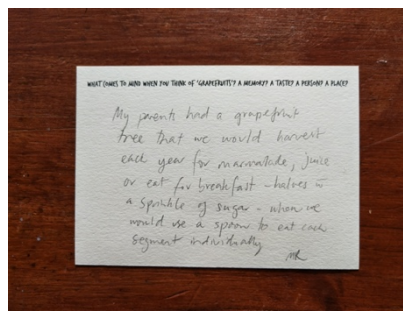 WHAT COMES TO MIND WHEN YOU THINK OF 'GRAPEFRUITS'? A MEMORY? A TASTE? A PERSON? A PLACE?
My parents had a grapefruit
tree that we would harvest
each year for marmalade, juice
or eat for breakfast - halves w
a sprinkle of sugar - when we
would use a spoon to eat each
segment individually
MR